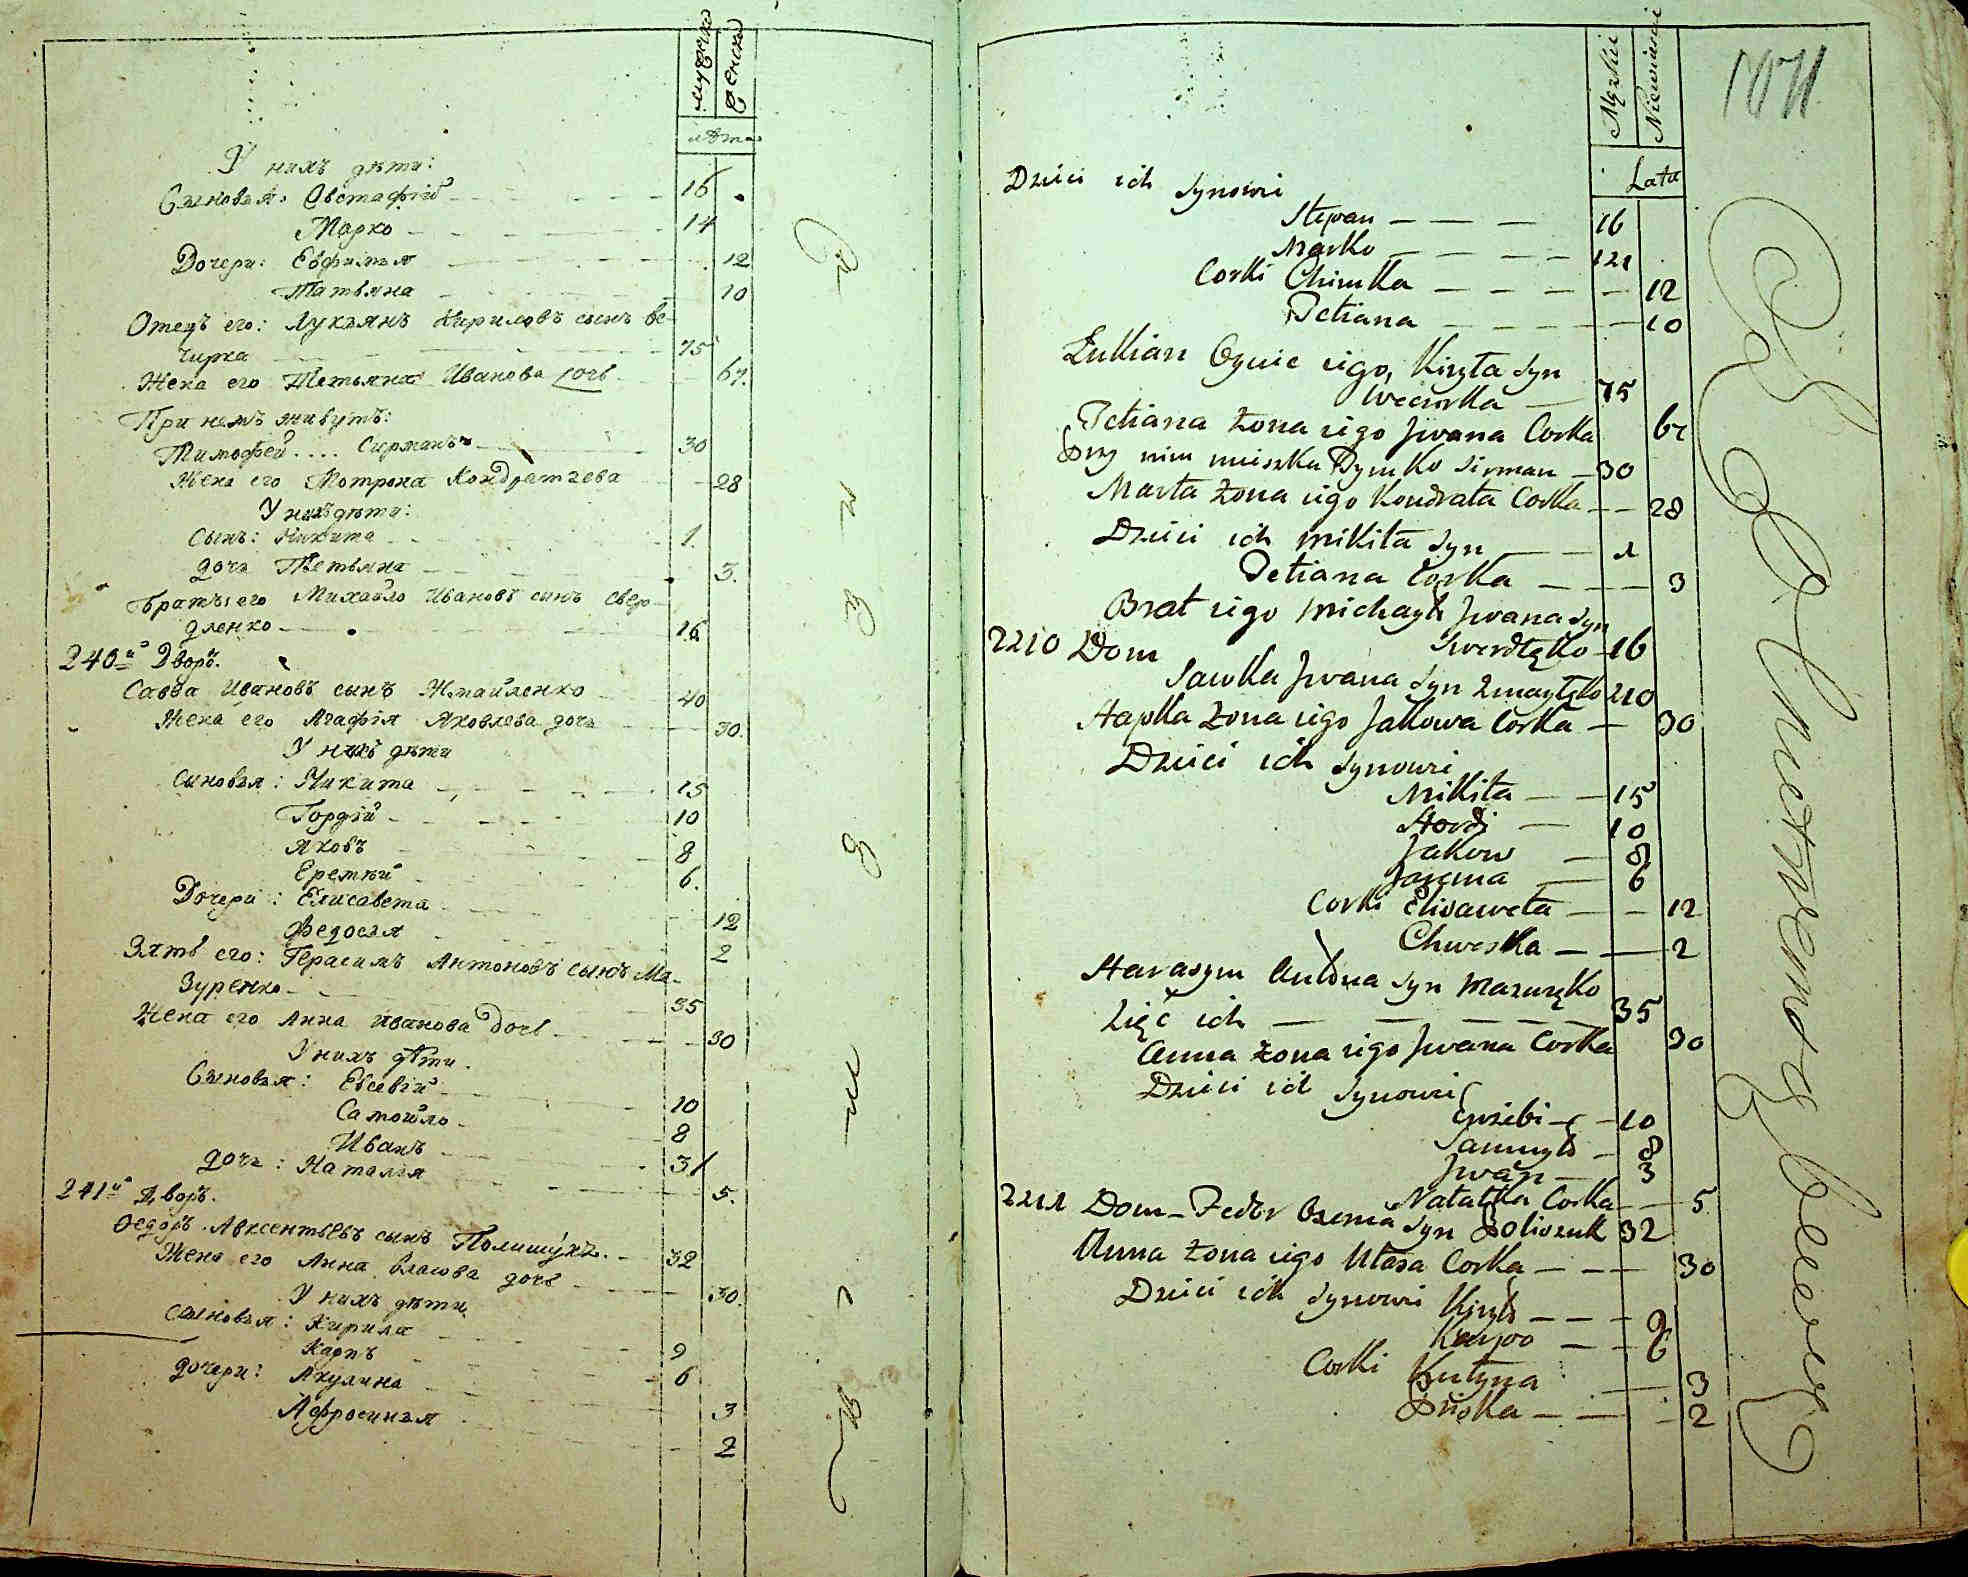 мужеска
женска
лѣта
У нихъ дѣти:
Сыновья: Евстафій 16
Марко 14
Дочери: Евфимья 12
Татьяна 10
Отецъ его: Лукьянъ Кириловъ сынъ Ве-
чирка 75
Жена его Татьяна Иванова дочь 67.
При немъ живутъ:
Тимофей .... Сирманъ 30
Жена его Мотрона Кондратьева 28
У нихъ дѣти:
Сынъ: Никита 1.
дочь Татьяна 3.
Братъ его Михайло Ивановъ сынъ Свер-
дленко 16
240й Дворъ.
Савва Ивановъ сынъ Жмайленко 40
Жена его Агафія Яковлева дочь 30.
У нихъ дѣти
Сыновья: Никита 15
Гордій 10
Яковъ 8
Еремѣй 6.
Дочери: Елисавета 12
Федосья 2
Зять его: Герасимъ Антоновъ сынъ Ма-
зуренко 35
Жена его Анна Иванова дочь 30
У нихъ дѣти.
Сыновья: Евсевій 10
Самойло 8
Иванъ 3
дочь: Наталія 5.
241й Дворъ.
Ѳедоръ Авксентьевъ сынъ Полищукъ. 32
Жена его Анна Власова дочь 30.
У нихъ дѣти
Сыновья: Кирила 9
Карпъ 6
дочери: Акулина 3
Афросинья 2
Męzkie
Niewieście
Lata
Dzieci ich Synowie
Stepan 16
Marko 14
Corki Chimka 12
Tetiana 10
Łukian Oyciec iego, Kiryła Syn
Weczorka 75
Tetiana żona iego Jwana Corka 67
Przy nim mieszka Tymko Sirman 30
Marta żona iego Kondrata Corka 28
Dzieci ich Mikita Syn 1
Tetiana Corka 3
Brat iego Michayło Jwana Syn
Swerdłęko 16
240 Dom
Sawka Jwana Syn Zmayłęko 40
Hapka żona iego Jakowa Corka 30
Dzieci ich Synowie
Mikita 15
Hordi 10
Jakow 8
Jarema 6
Corki Elisaweta 12
Chweska 2
Harasym Antona Syn Mazuręko
Zięć ich 35
Anna żona iego Jwana Corka 30
Dzieci ich Synowie
Ewzebi 10
Samuyło 8
Jwan 3
Natałka Corka 5
241 Dom Fedor Syn Poliszuk 32
Anna żona iego Własa Corka 30
Dzieci ich Synowie Kiryło 9
Karpo 6
Corki Kułyna 3
Pryska 2